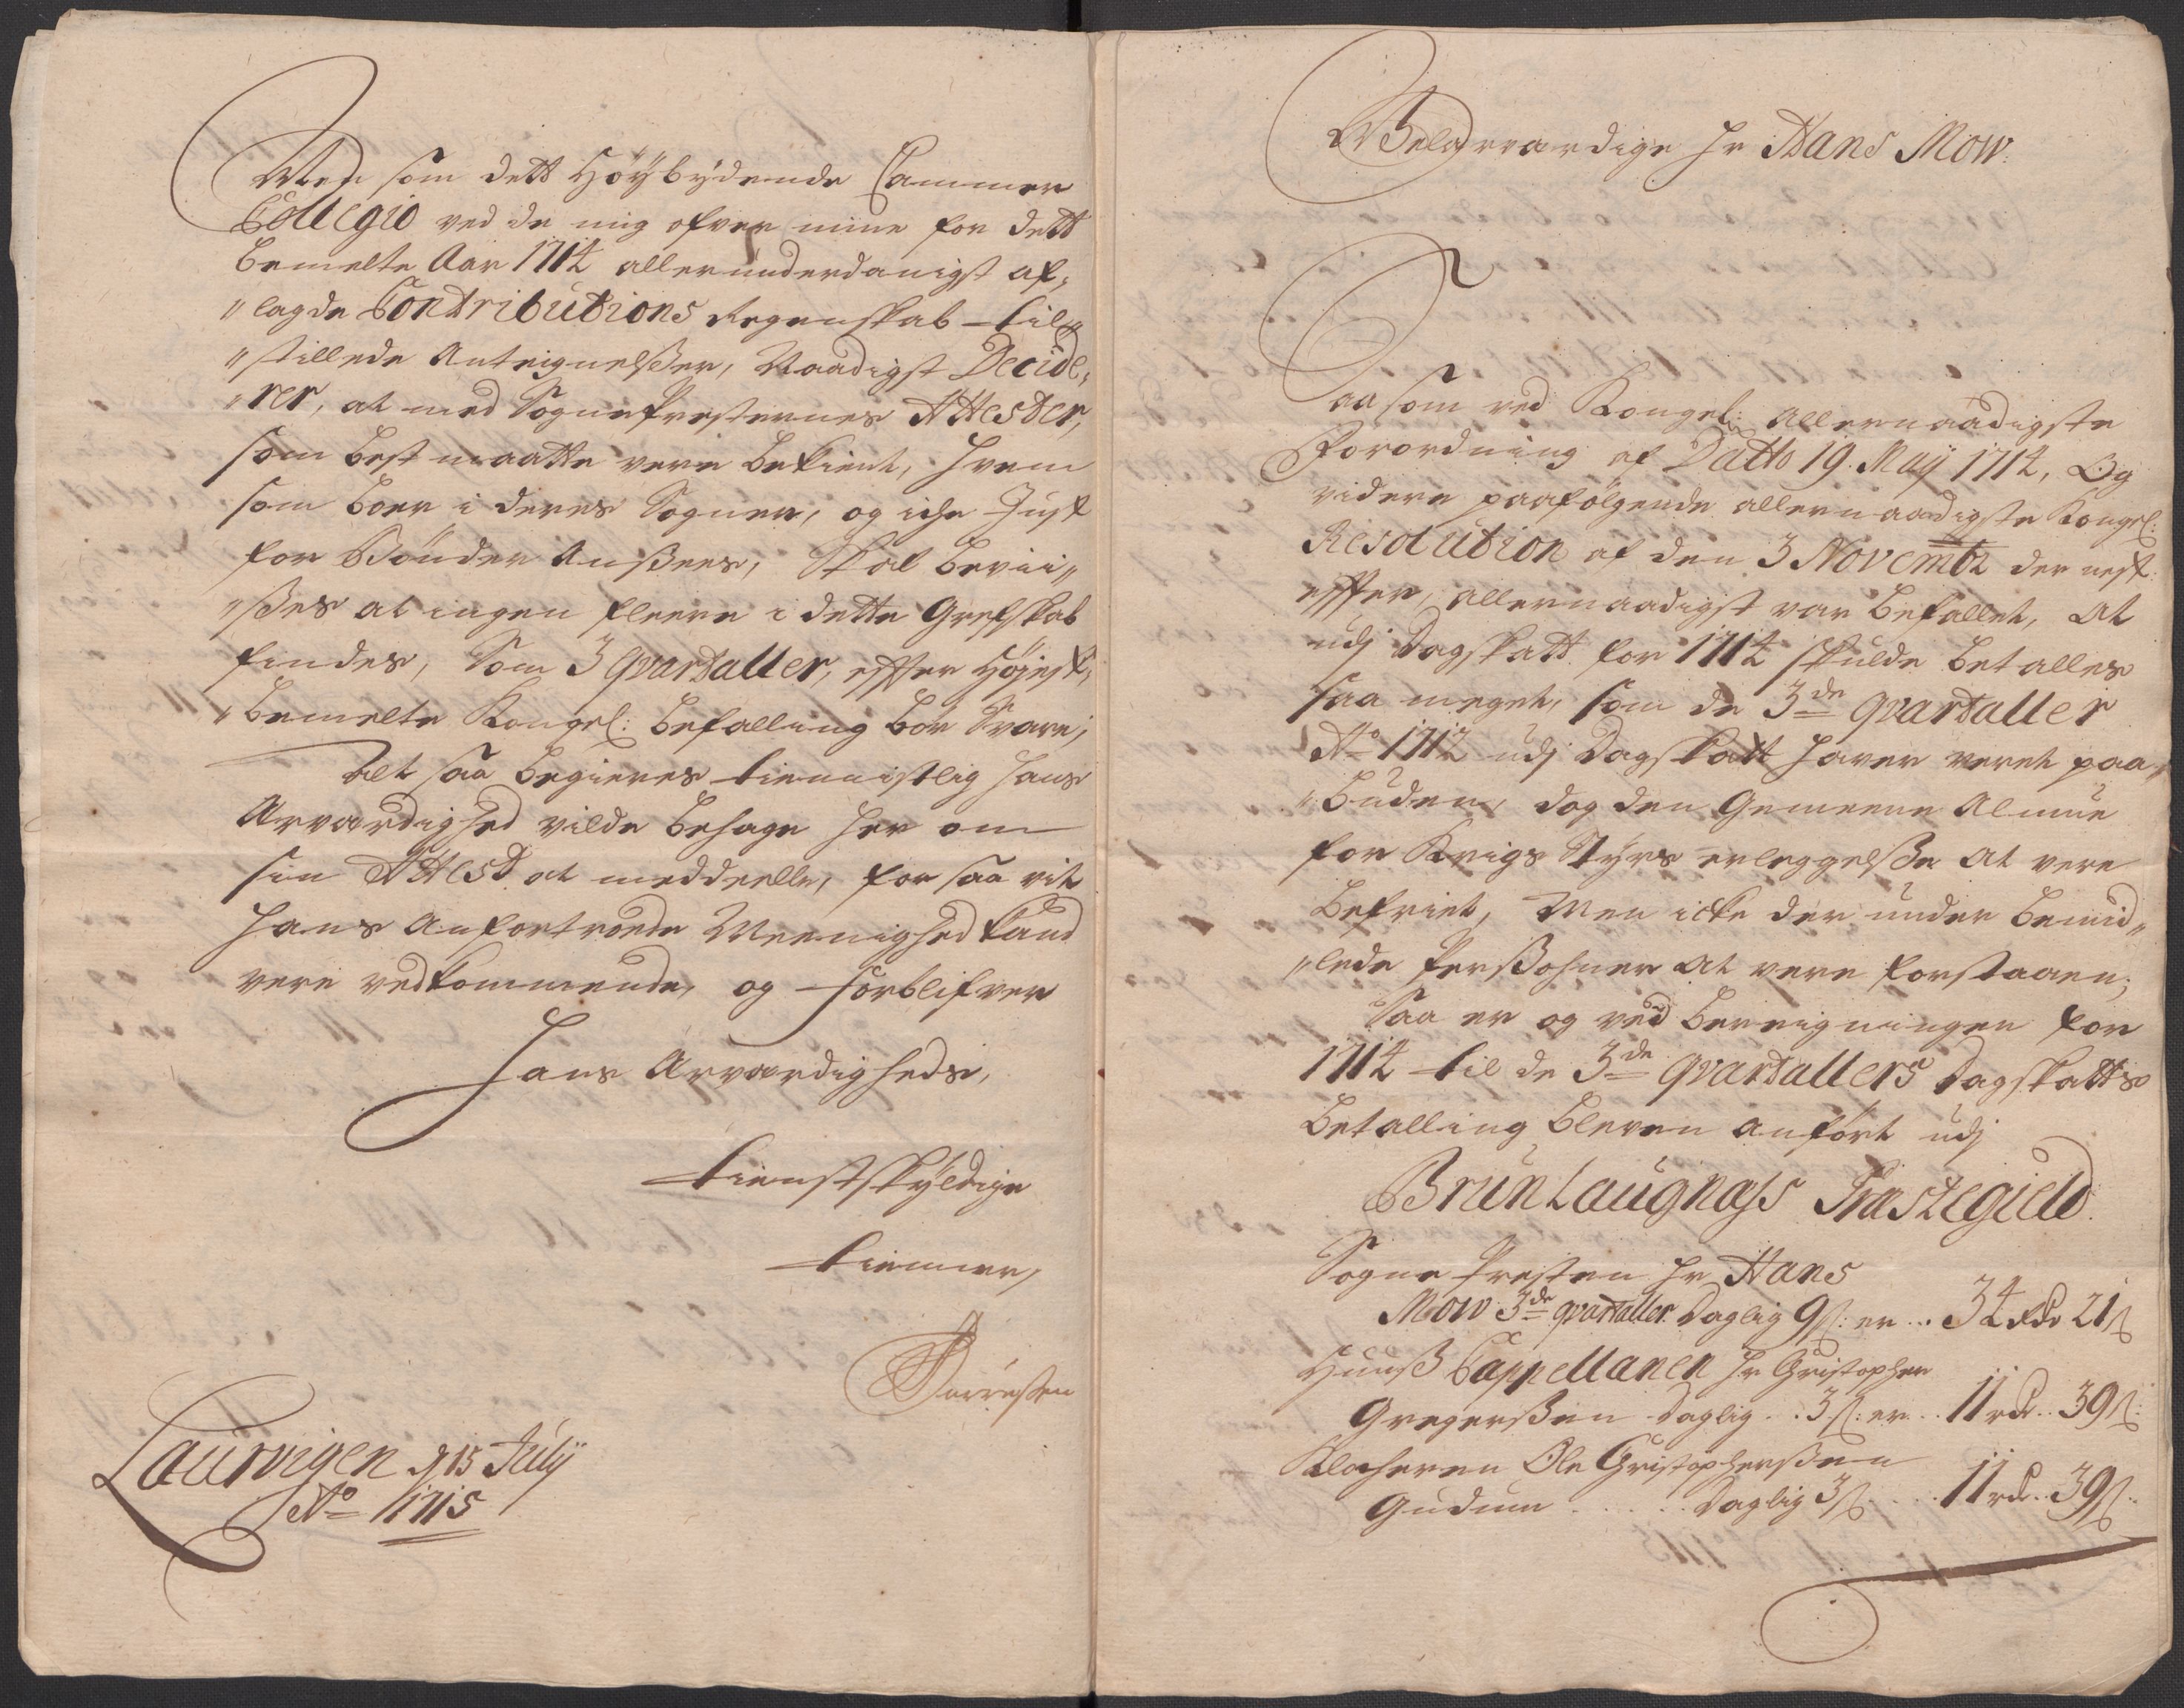 Men som dett Höÿbydende Cammer
Collegio ved de mig ofver mine for dett
bemelte Aar 1714 allerunderdanigst af,,
,,lagde Contributions Regenskab til,,
,,stillede Anteignelsser, Naadigst Decide,,
,,rer, at med Sognepresternes Attester,
som best maatte vere bekient, hvem
som boer i deres Sogner, og iche Just
for Bönder ansees, skal bevii,,
,,sses at ingen fleere i dette Grefskab
findes, som 3 qvartaller, efter Höjest,,
,,bemelte Kongel: befalling bör Svare;
Alt saa begieres tiennistlig hans
Ærværdighed vilde behage her om
sin Attest at meddeelle, for saa vit
hans anfortroede Meenighed kand
vere vedkommende, og forblifver
Hans Ærværdigheds,
tienstskÿldige
tienner,
Laurvigen d 15 Julÿ
Ao 1715
Velærværdige Hr Hans Mow.
Saasom ved Kongel: allernaadigste
Forordning af Datto 19. Maÿ 1714, Og
videre paafölgende allernaadigste Kongel:
Resolution af den 3 Novembr der nest
effter, allernaadigst var befallet, at
udj Dagskatt for 1714 skulde betalles
saa meget, som de 3de qvartaller
Ao 1712 udj Dagskatt haver veret paa,,
,,buden, dog den Gemeene Almue
for Krigs Stÿrs erleggelsse at vere
befriet, Men icke der under bemid,,
,,lede Perssohner at vere forstaaen;
Saa er og ved bereigningen for
1714 til de 3de qvartallers Dagskatts
betalling bleven anfört udj
Brunlaugnæss Præstegield.
Sogne Presten Hr Hans
Mow 3de qvartaller Daglig 9 s: er... 34 rdr 21 s
Huuss Cappellanen Hr Christopher
Gregerssen Daglig.. 3 s: er.. 11 rdr.. 39 s:
Klocheren Ole Christopherssen
Gudum ..... Daglig 3 s .... 11 rdr.. 39 s..